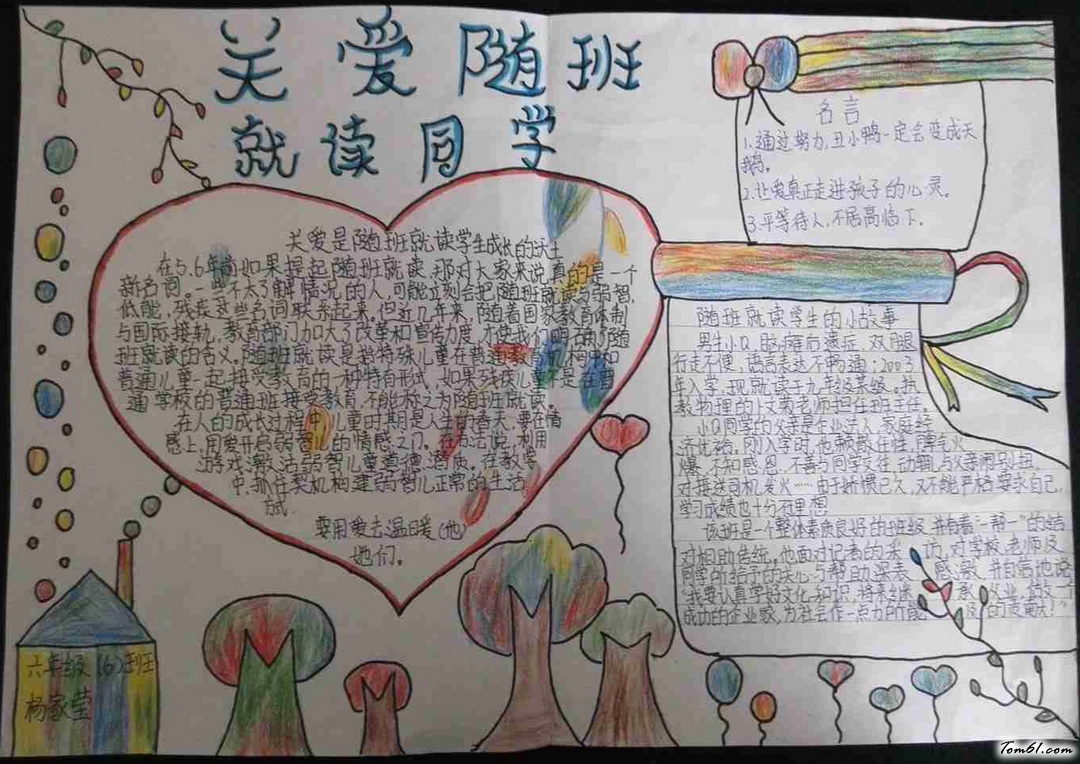 关爱随班
就读同学
名言
1.通过努力,丑小鸭一定会变成天
鹅。
2.让爱真正走进孩子的心灵。
3.平等待人,不居高临下.
关爱是随班就读学生成长的沃土
在5.6年前如果提起随班就读,那对大家来说,真的是一个
新名词。一些不太了解情况的人,可能立刻会把随班就读与弱智,
低能,残疾这些名词联系起来。但近几年来,随着国家教育体制
与国际接轨,教育部门加大了改革和宣传力度,才使我们明确了随
班就读的含义。随班就读是指特殊儿童在普通教育机构中和
普通儿童一起接受教育的一种特有形式,如果残疾儿童不是在普
通学校的普通班接受教育,不能称之为随班就读
在人的成长过程中,儿童的时期是人生的春天,要在情
感上,用爱开启弱智儿的情感之门。在方法上,利用
游戏激活弱智儿童道德潜质。在教学
中,抓住契机构建弱智儿正常的生活
方式.
要用爱去温暖(他)
她们。
随班就读学生的小故事
男生小Q,脑瘫后遗症,双腿
行走不便,语言表达不畅通;2003
年入学,现就读于九年级某级。执
教物理的小艾黄老师担任班主任.
小Q同学的父亲是企业法人,家庭经
济优裕。刚入学时,他颇骄任性,脾气火
爆,不知感恩,不善与同学交往,动辄与父亲闹别扭,
对接送司机发火……由于娇惯已久,又不能严格要求自己,
学习成绩也十分不理想
该班是一个整体素质良好的班级,并有着"一帮一"的结
对相助传统。他面对记者的采访,对学校,老师及
同学所给予的关心与帮助深表感激,并自信地说
"我要认真学好文化知识,将来继承父业,做一个
成功的企业家,为社会作一点力所能及的贡献!"
六年级(6)班
杨家莹
Tom61.com